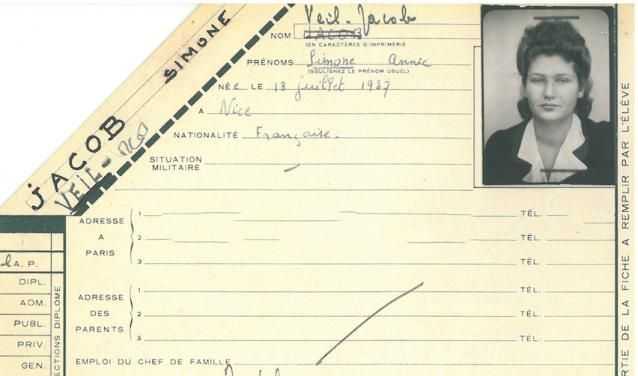 JACOB SIMONE
VEIL-
Veil-Jacob
NOM JACOB
(EN CARACTÈRES D'IMPRIMERIE
PRÉNOMS Simone Annie
(SOULIGNEZ LE PRÉNOM USUEL)
NÉE LE 13 juillet 1927
A Nice
NATIONALITÉ Française.
SITUATION
MILITAIRE
ADRESSE
A
PARIS
1 TÉL.
2 TÉL.
3 TÉL.
ADRESSE
DES
PARENTS
1 TÉL.
2 TÉL.
3 TÉL.
EMPLOI DU CHEF DE FAMILLE
A.P.
DIPL.
ADM.
PUBL.
PRIV.
GEN.
ECTIONS DIPLOME
RTIE DE LA FICHE A REMPLIR PAR L'ÉLÈVE